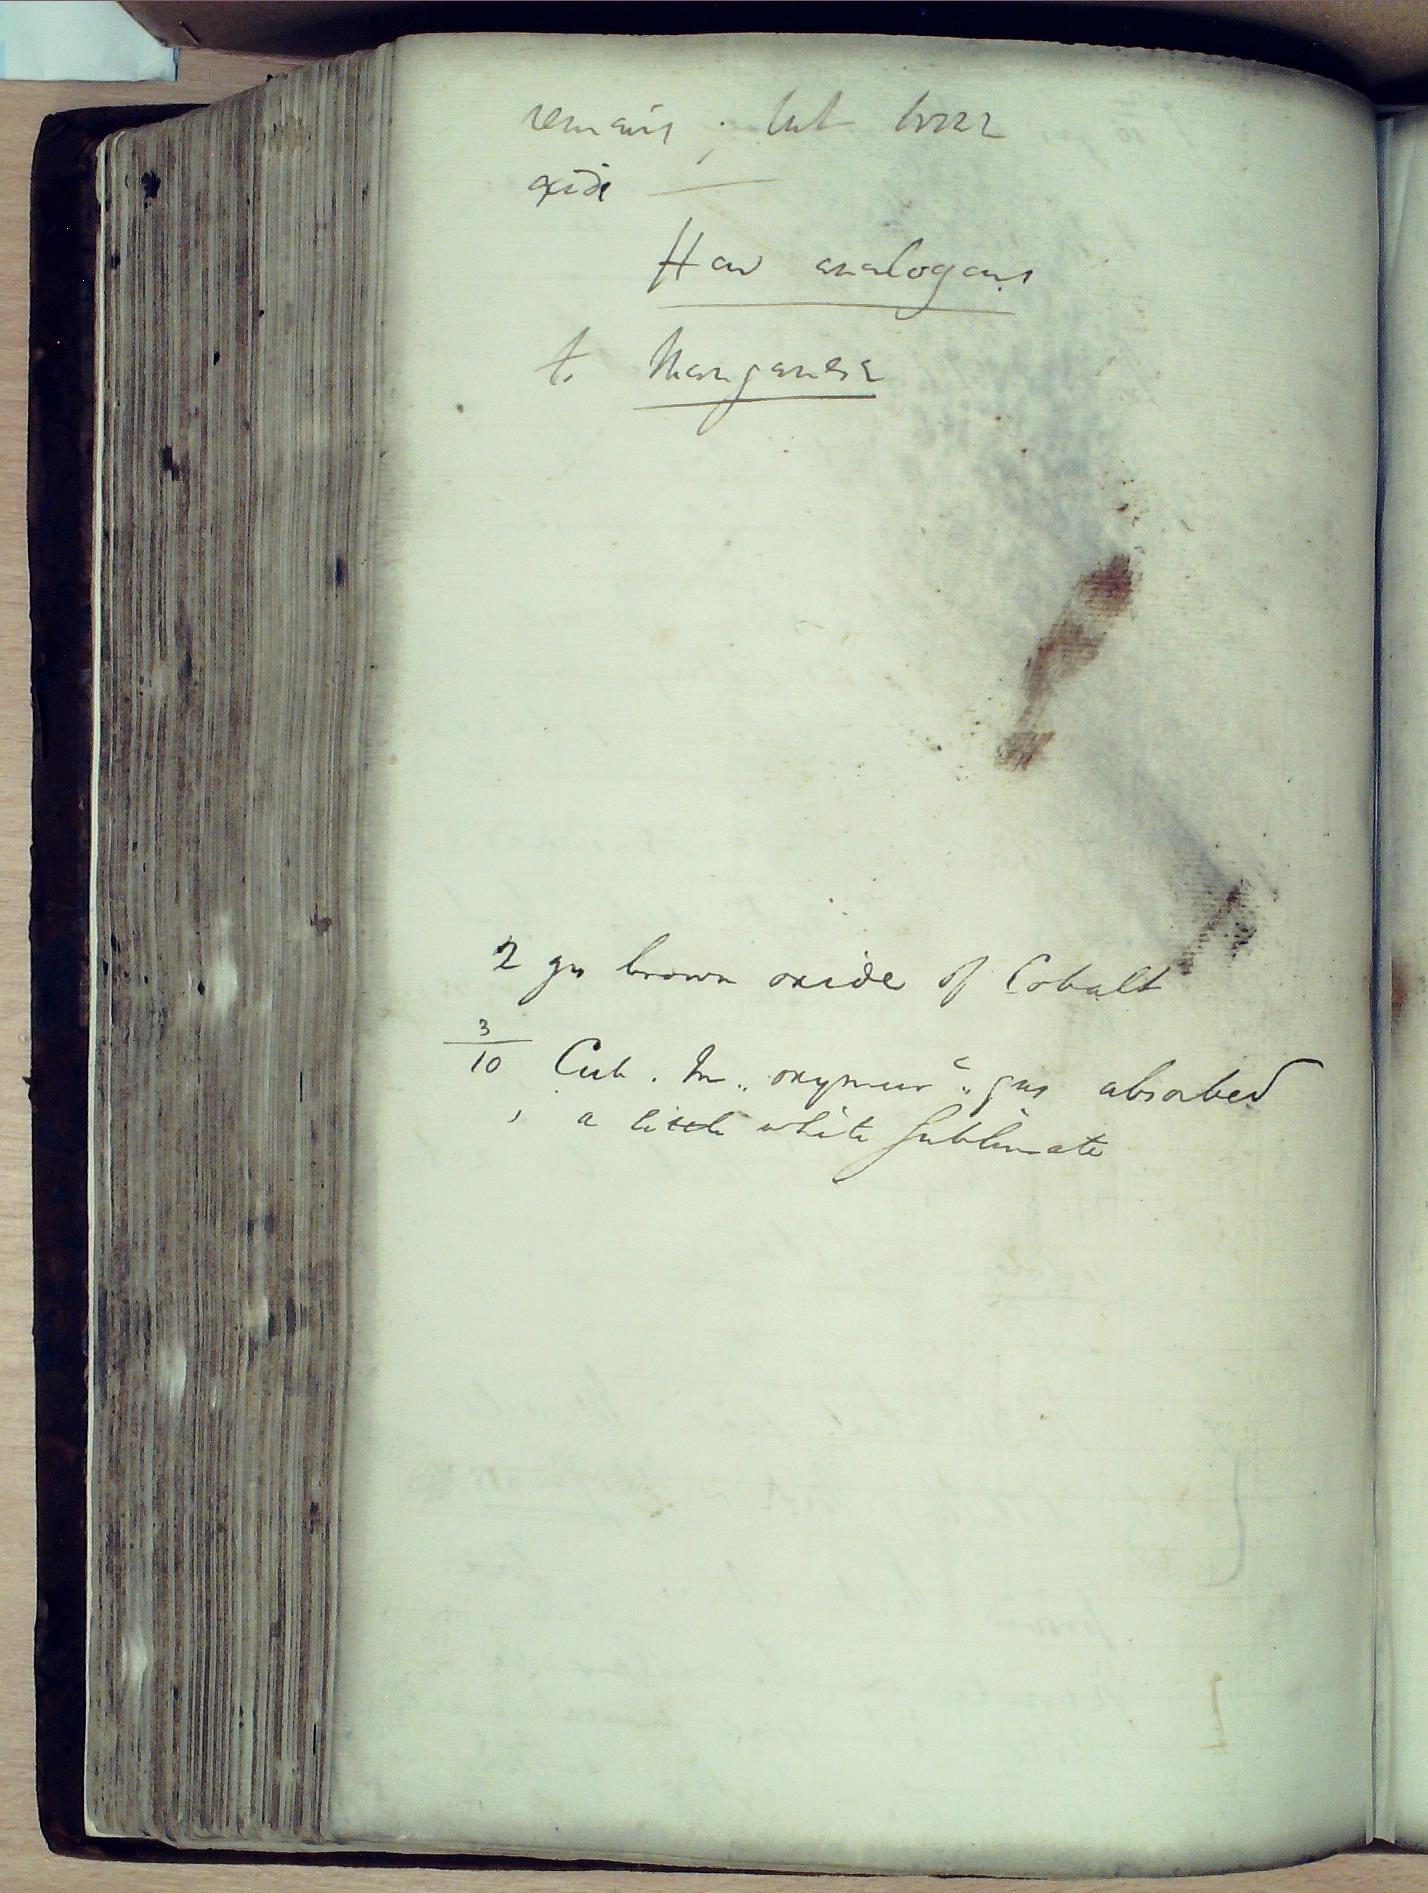 remains; but
oxide —
How analogous
to Manganese
2 grs brown oxide of Cobalt
3/10 Cub. In.. oxymurc.. gas absorbed
, a little white sublimate